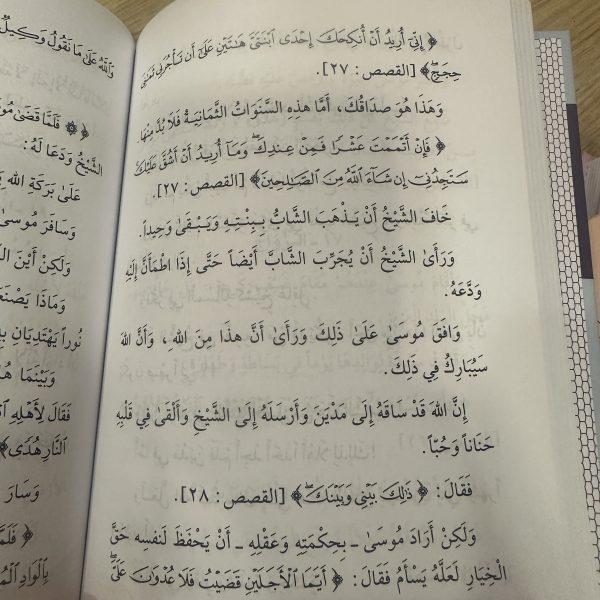 ﴿ إِنِّيٓ أُرِيدُ أَنْ أُنكِحَكَ إِحْدَى ٱبْنَتَيَّ هَٰتَيْنِ عَلَىٰٓ أَن تَأْجُرَنِي ثَمَٰنِيَ
حِجَجٍ ﴾ [القصص: ٢٧].
وَهَذَا هُوَ صَدَاقُكَ، أَمَّا هذِهِ السَّنَوَاتُ الثَّمَانِيَةُ فَلَا بُدَّ مِنْهَا.
﴿ فَإِنْ أَتْمَمْتَ عَشْرًا فَمِنْ عِندِكَ ۖ وَمَآ أُرِيدُ أَنْ أَشُقَّ عَلَيْكَ ۚ
سَتَجِدُنِيٓ إِن شَآءَ ٱللَّهُ مِنَ ٱلصَّٰلِحِينَ ﴾ [القصص: ٢٧].
خَافَ الشَّيْخُ أَنْ يَذْهَبَ الشَّابُّ بِبِنْتِهِ وَيَبْقَىٰ وَحِيداً.
وَرَأَىٰ الشَّيْخُ أَنْ يُجَرِّبَ الشَّابَّ أَيْضَاً حَتَّى إِذَا اطْمَأَنَّ إِلَيْهِ
وَدَّعَهُ.
وَافَقَ مُوسَىٰ عَلَىٰ ذَلِكَ وَرَأَىٰ أَنَّ هذَا مِنَ اللهِ، وَأَنَّ اللهَ
سَيُبَارِكُ فِي ذَلِكَ.
إِنَّ اللهَ قَدْ سَاقَهُ إِلَىٰ مَدْيَنَ وَأَرْسَلَهُ إِلَىٰ الشَّيْخِ وَأَلْقَىٰ فِي قَلْبِهِ
حَنَاناً وَحُبّاً.
فَقَالَ: ﴿ ذَلِكَ بَيْنِي وَبَيْنَكَ ۖ ﴾ [القصص: ٢٨].
وَلَكِنْ أَرَادَ مُوسَىٰ ـ بِحِكْمَتِهِ وَعَقْلِهِ ـ أَنْ يَحْفَظَ لَنَفسِهِ حَقَّ
الْخِيَارِ لَعَلَّهُ يَسْأَمُ فَقَالَ: ﴿ أَيَّمَا ٱلْأَجَلَيْنِ قَضَيْتُ فَلَا عُدْوَٰنَ عَلَيَّ ۖ
وَٱللَّهُ عَلَىٰ مَا نَقُولُ وَكِيلٌ
﴿ ۞ فَلَمَّا قَضَىٰ
الشَّيْخُ وَدَعَا لَهُ:
عَلَىٰ بَرَكَةِ اللهِ
وَسَافَرَ مُوسَىٰ
وَلَكِنْ أَيْنَ
وَمَاذَا يَصْنَعُ
نُوراً يَهْتَدِيَانِ
وَبَيْنَمَا
فَقَالَ لِأَهْلِهِ
ٱلنَّارِ هُدًى ﴾
وَسَارَ
﴿ فَلَمَّا
بِٱلْوَادِ